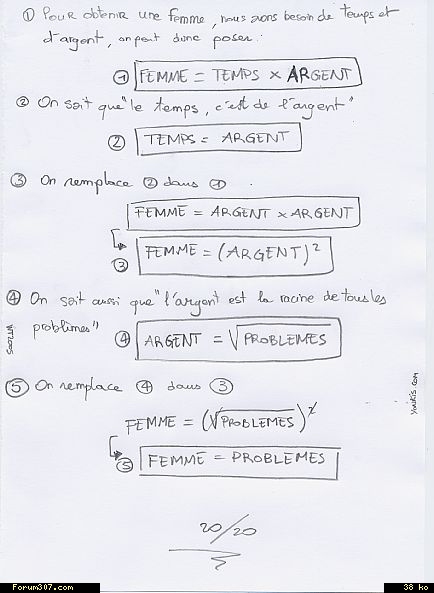 ① Pour obtenir une femme, nous avons besoin de temps et
d'argent, on peut donc poser :
① FEMME = TEMPS × ARGENT
② On sait que "le temps, c'est de l'argent"
② TEMPS = ARGENT
③ On remplace ② dans ①
FEMME = ARGENT × ARGENT
③ FEMME = (ARGENT)²
④ On sait aussi que "l'argent est la racine de tous les
problèmes"
④ ARGENT = √PROBLEMES
⑤ On remplace ④ dans ③
FEMME = (√PROBLEMES)²
⑤ FEMME = PROBLEMES
20/20
Forum307.com
38 ko